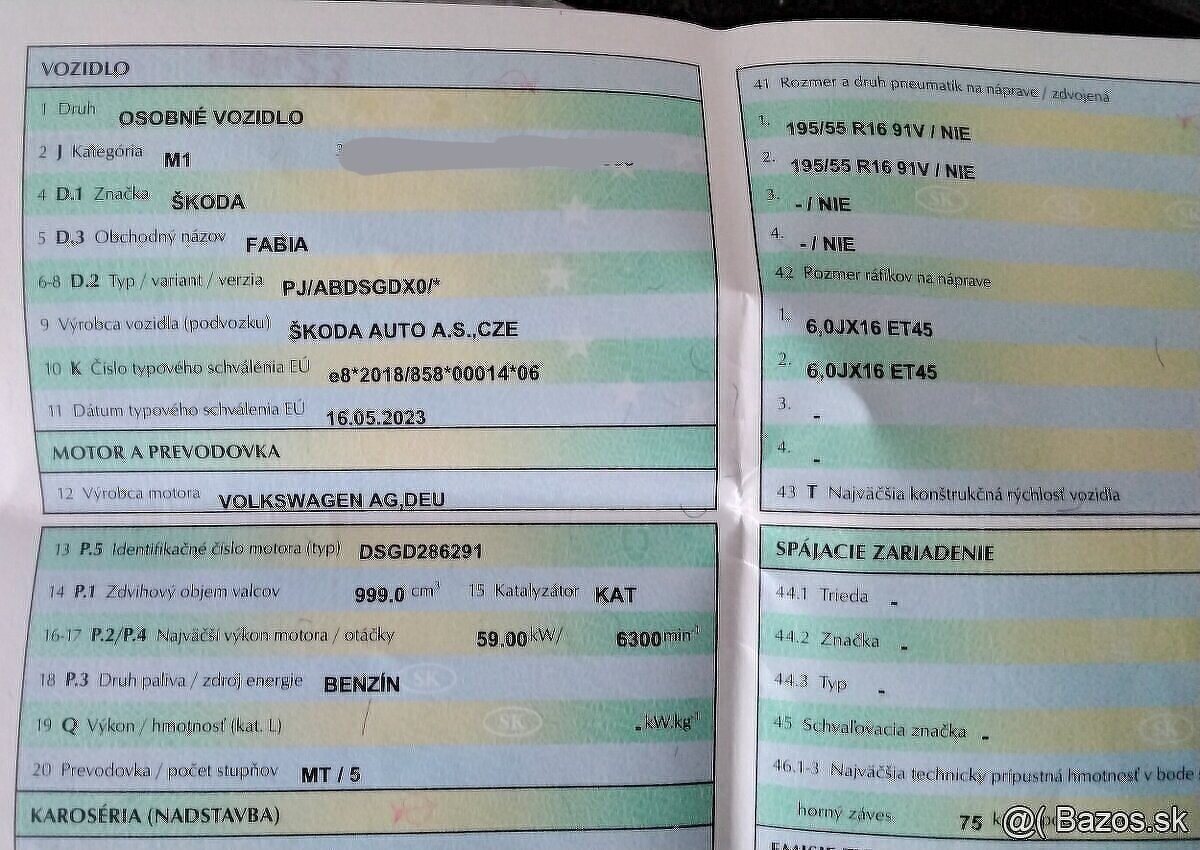 VOZIDLO
1 Druh OSOBNÉ VOZIDLO
2 J Kategória M1
4 D.1 Značka ŠKODA
5 D.3 Obchodný názov FABIA
6-8 D.2 Typ / variant / verzia PJ/ABDSGDX0/*
9 Výrobca vozidla (podvozku) ŠKODA AUTO A.S.,CZE
10 K Číslo typového schválenia EÚ e8*2018/858*00014*06
11 Dátum typového schválenia EÚ 16.05.2023
MOTOR A PREVODOVKA
12 Výrobca motora VOLKSWAGEN AG,DEU
13 P.5 Identifikačné číslo motora (typ) DSGD286291
14 P.1 Zdvihový objem valcov 999.0 cm³ 15 Katalyzátor KAT
16-17 P.2/P.4 Najväčší výkon motora / otáčky 59.00 kW/ 6300 min⁻¹
18 P.3 Druh paliva / zdroj energie BENZÍN SK
19 Q Výkon / hmotnosť (kat. L) SK - kW.kg⁻¹
20 Prevodovka / počet stupňov MT / 5
KAROSÉRIA (NADSTAVBA)
41 Rozmer a druh pneumatík na náprave / zdvojená
1. 195/55 R16 91V / NIE
2. 195/55 R16 91V / NIE
3. - / NIE SK
4. - / NIE
42 Rozmer ráfikov na náprave
1. 6,0JX16 ET45
2. 6,0JX16 ET45
3. -
4. -
43 T Najväčšia konštrukčná rýchlosť vozidla
SPÁJACIE ZARIADENIE
44.1 Trieda -
44.2 Značka -
44.3 Typ -
45 Schvaľovacia značka - SK
46.1-3 Najväčšia technicky prípustná hmotnosť v bode
horný záves 75
@( Bazos.sk